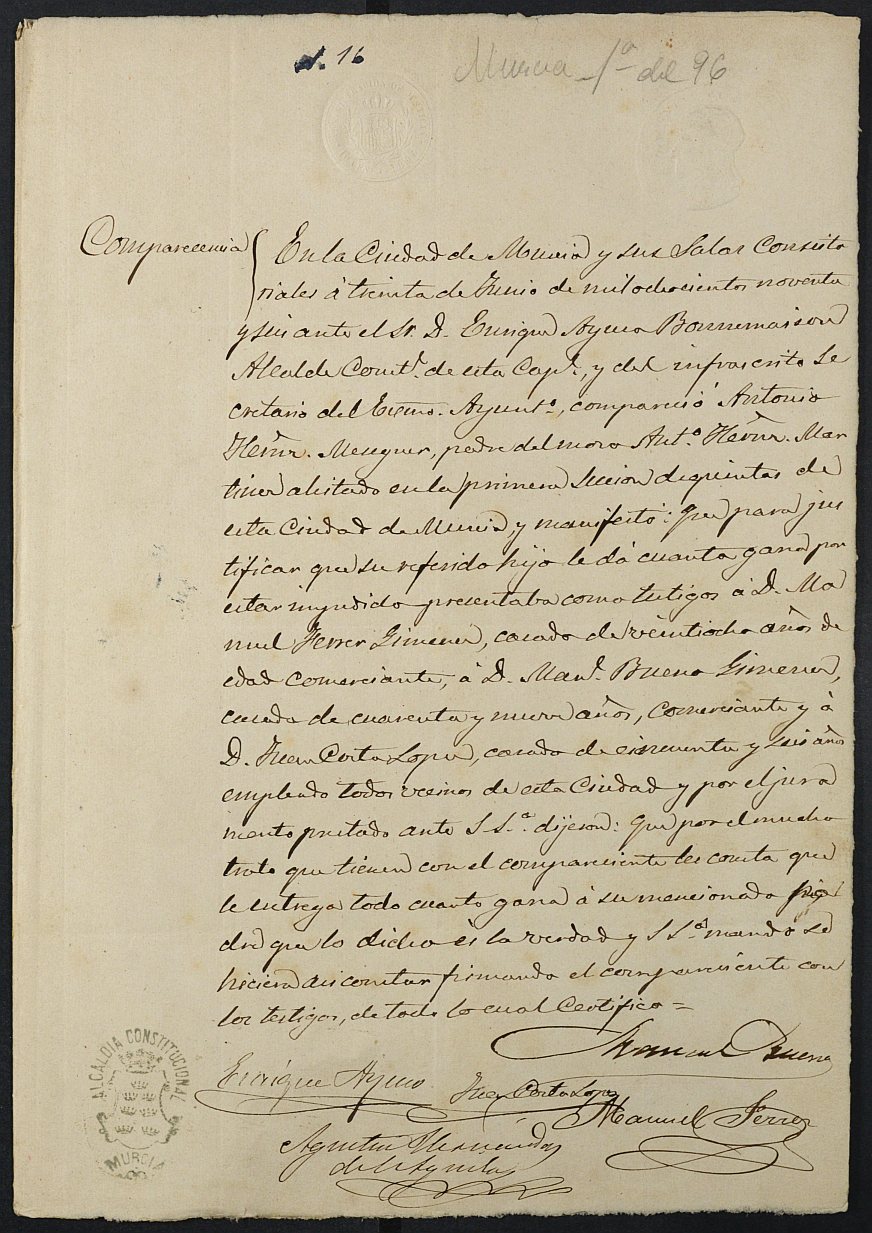 N. 16
Murcia 1ª del 96
Comparecencia
En la Ciudad de Murcia y sus Salas Consisto
riales á treinta de Junio de mil ochocientos noventa
y seis ante el Sr. D. Enrique Ayuso Bonnemaison
Alcalde Constl. de esta Capl., y del infrascrito Se
cretario del Excmo. Ayuntº., compareció Antonio
Hernz. Meseguer, padre del mozo Antº. Hernz. Mar
tinez alistado en la primera Seccion de quintas de
esta Ciudad de Murcia, y manifestó: Que para jus
tificar que su referido hijo le dá cuanto gana por
estar impedido presentaba como testigos á D. Ma
nuel Ferrer Gimenez, casado de veintiocho años de
edad comerciante, á D. Manl. Bueno Gimenez,
casado de cuarenta y nueve años, comerciante y á
D. Juan Costa Lopez, casado de cincuenta y seis años
empleado todos vecinos de esta Ciudad y por el jura
mento prestado ante S. Sª. dijeron: Que por el mucho
trato que tienen con el compareciente les consta que
le entrega todo cuanto gana á su mencionado
dre que lo dicho és la verdad y S Sª. mandó se
hiciera asi constar firmando el compareciente con
los testigos, de todo lo cual Certifico=
Manuel Bueno
Enrique Ayuso
Juan Costa Lopez
Manuel Ferrer
Agustin Hernandez
del Aguila
ALCALDIA CONSTITUCIONAL
MURCIA